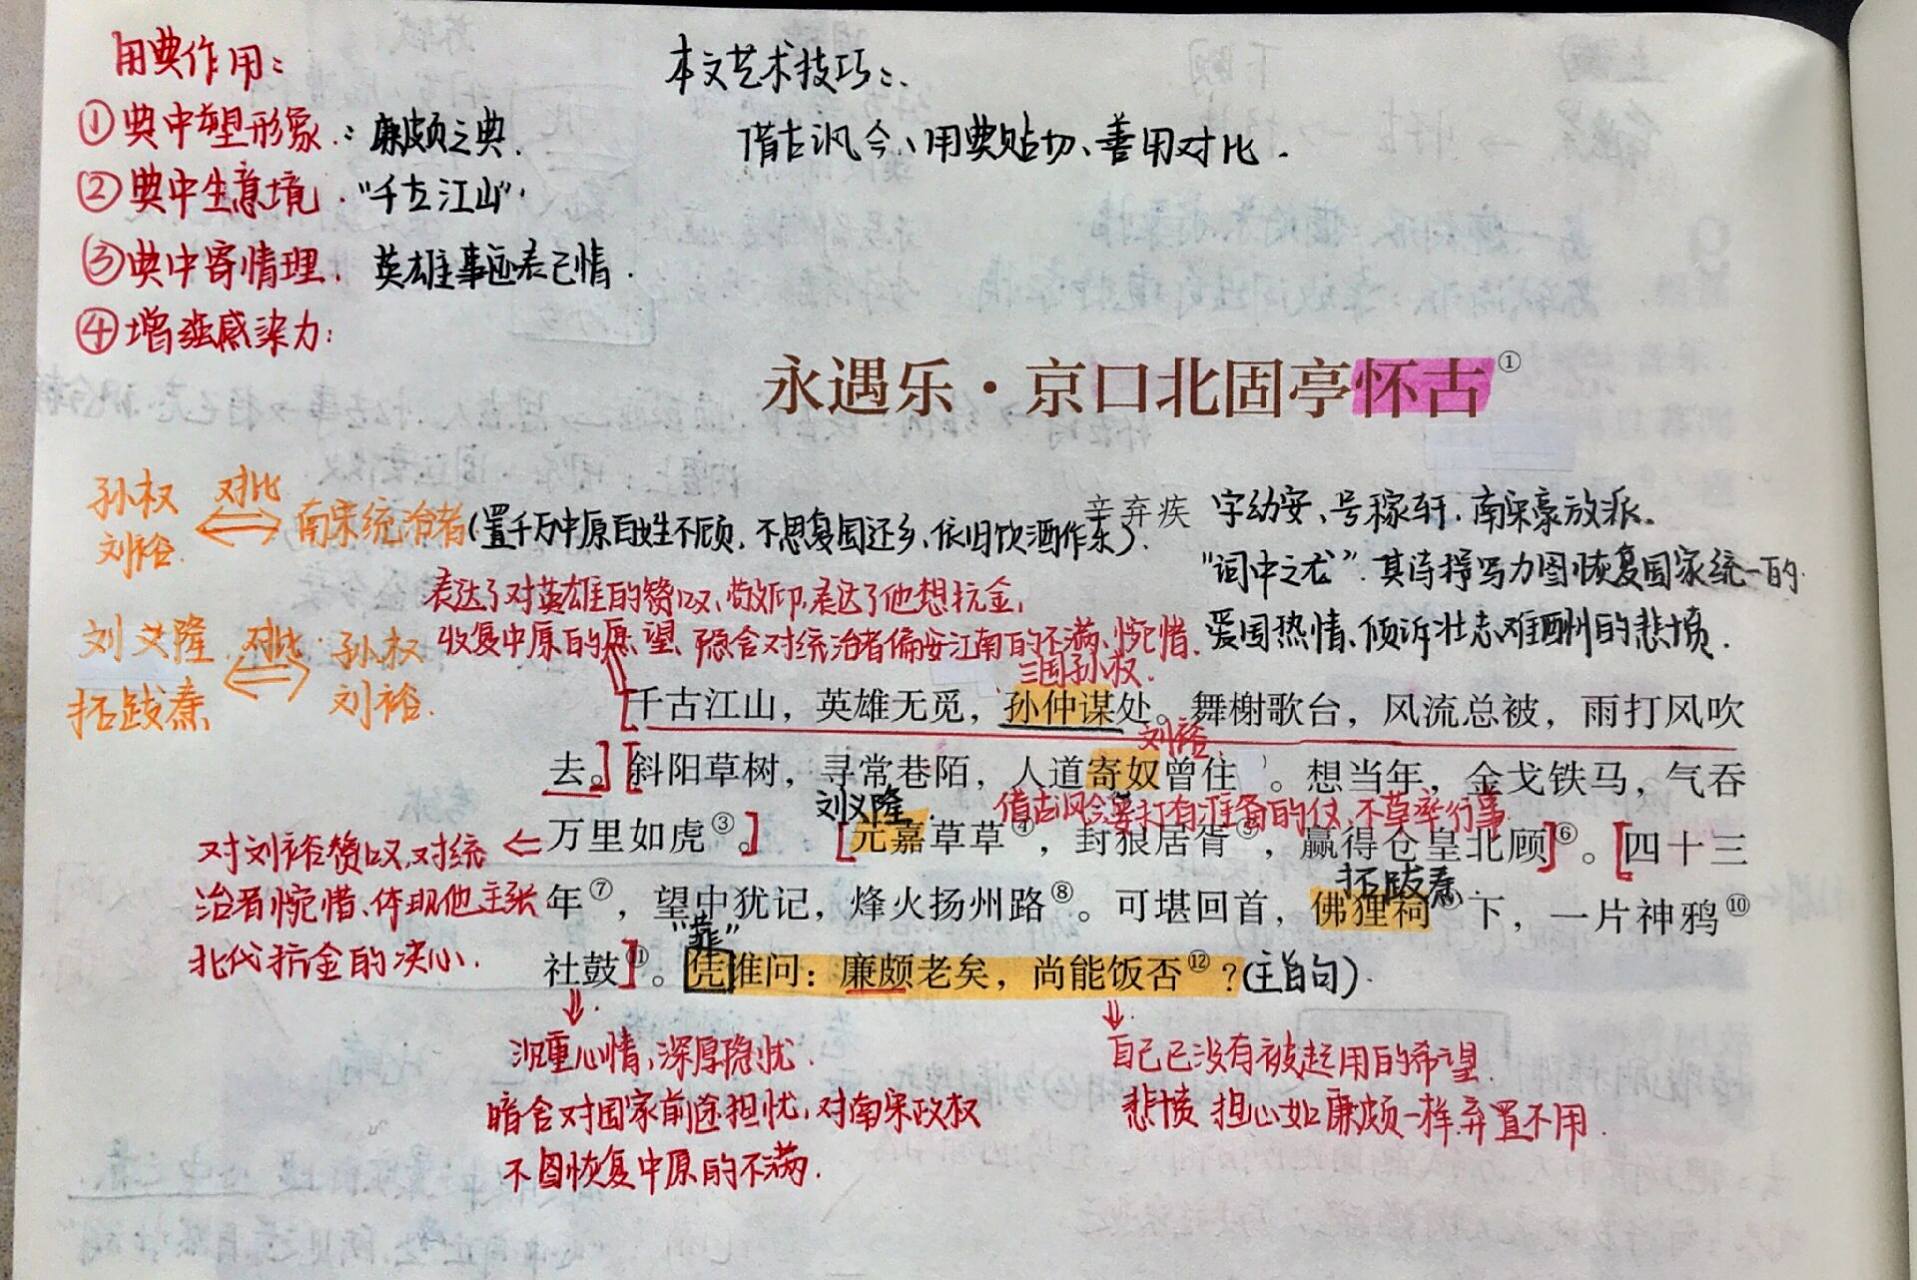 用典作用：
①典中塑形象：廉颇之典.
②典中生意境."千古江山".
③典中寄情理.英雄事迹表己情.
④增强感染力：
本文艺术技巧：.
借古讽今、用典贴切、善用对比.
永遇乐·京口北固亭怀古①
孙权
刘裕.
对比
南宋统治者(置千万中原百姓不顾,不思复国还乡、依旧饮酒作乐).
辛弃疾 字幼安、号稼轩.南宋豪放派。
"词中之龙".其诗抒写力图恢复国家统一的
爱国热情、倾诉壮志难酬的悲愤.
表达了对英雄的赞叹、敬仰,表达了他想抗金,
收复中原的愿望、隐含对统治者偏安江南的不满、惋惜.
刘义隆
拓跋焘
对比
孙权
刘裕.
三国孙权.
千古江山，英雄无觅，孙仲谋处。舞榭歌台，风流总被，雨打风吹
刘裕
去。斜阳草树，寻常巷陌，人道寄奴曾住。想当年，金戈铁马，气吞
刘义隆.
借古讽今要打有准备的仗,不草率行事.
万里如虎③。元嘉草草④，封狼居胥⑤，赢得仓皇北顾⑥。四十三
拓跋焘.
年⑦，望中犹记，烽火扬州路⑧。可堪回首，佛狸祠下，一片神鸦⑩
"靠"
社鼓⑪。凭谁问：廉颇老矣，尚能饭否⑫？(主旨句).
对刘裕赞叹,对统
治者惋惜、体现他主张
北伐抗金的决心.
沉重心情,深厚隐忧.
暗含对国家前途担忧,对南宋政权
不图恢复中原的不满.
自己已没有被起用的希望.
悲愤 担心如廉颇一样弃置不用.